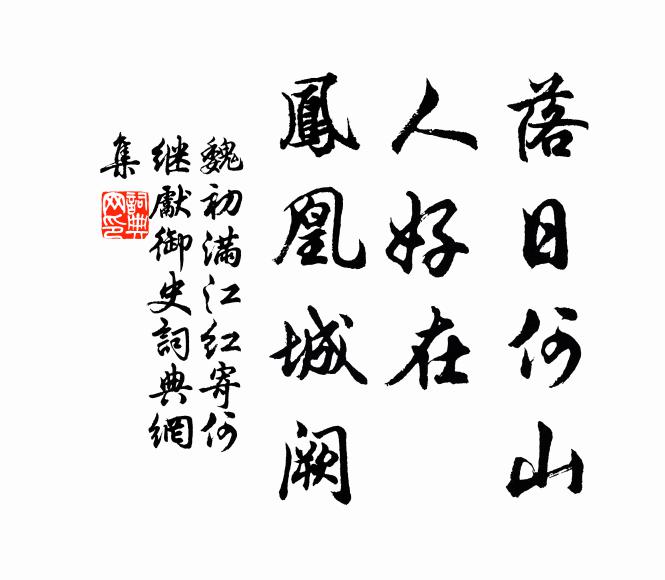 落日何山
人好在
鳳凰城闕
魏初满江红寄何
继獻御史詞典網
集
詞典
网印